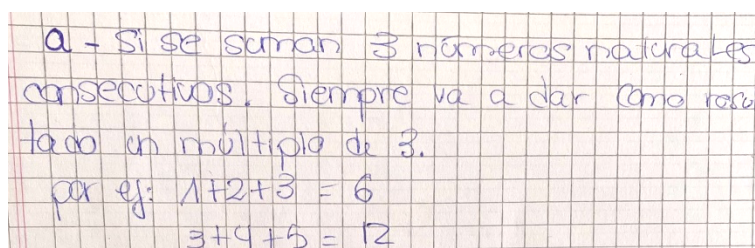 a - Si se suman 3 números naturales
consecutivos. Siempre va a dar como resu
tado un múltiplo de 3.
por ej: 1+2+3 = 6
3+4+5 = 12